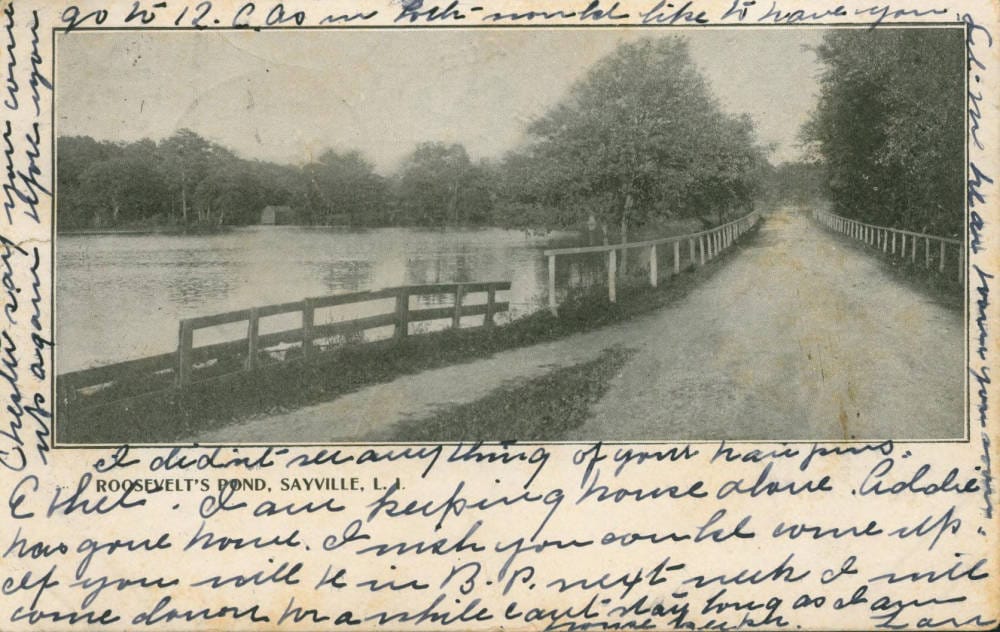 I didn't see anything of your hair pins.
ROOSEVELT'S POND, SAYVILLE, L. I.
Ethel. I am keeping house alone. Addie
has gone home. I wish you could come up
If you will be in B.P. next week I will
come down for a while can't stay long as I am
house keeper.
Chester say you come
up again before you
go to R. C. as we both would like to have you.
Let me hear from you soon.